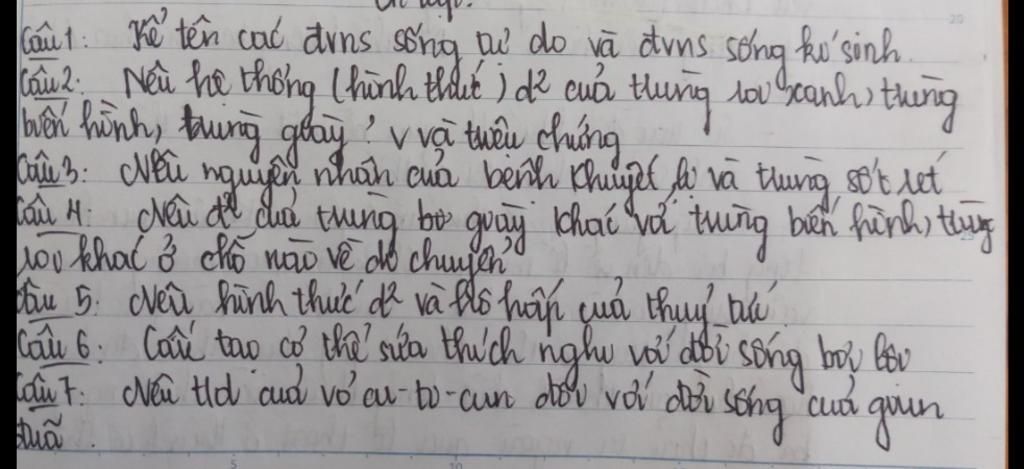 ôn tập:
Câu 1: Kể tên các đvns sống tự do và đvns sống kí sinh.
Câu 2: Nêu hệ thống (hình thức) d² của trùng roi xanh, trùng
biến hình, trùng giày? và triệu chứng
Câu 3: Nêu nguyên nhân của bệnh khuyết lị và trùng sốt rét
Câu 4: Nêu d² của trùng giày khác với trùng biến hình, trùng
roi khác ở chỗ nào về di chuyển
Câu 5: Nêu hình thức d² và hô hấp của thuỷ tức.
Câu 6: Cấu tạo cơ thể sứa thích nghi với đời sống bơi lội
Câu 7: Nêu t/d của vỏ cu-ti-cun đối với đời sống của giun
đũa.